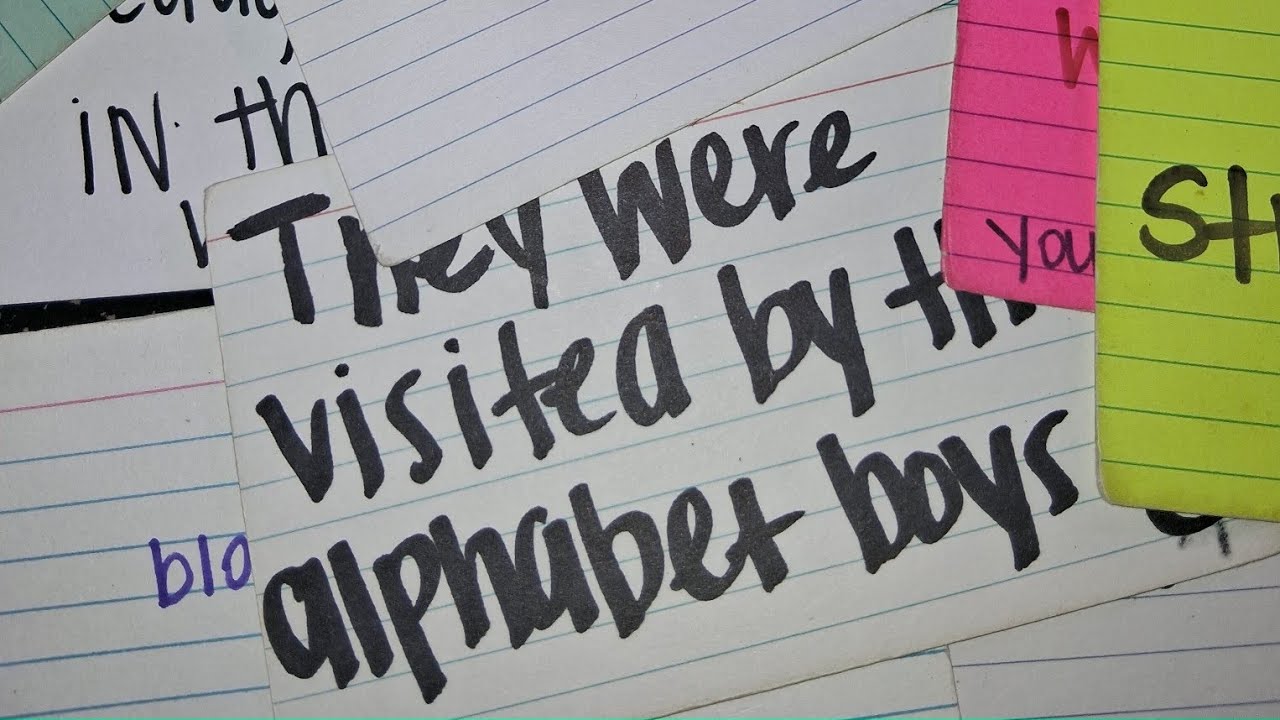 in th
They were
visited by th
alphabet boys
blo
you
St